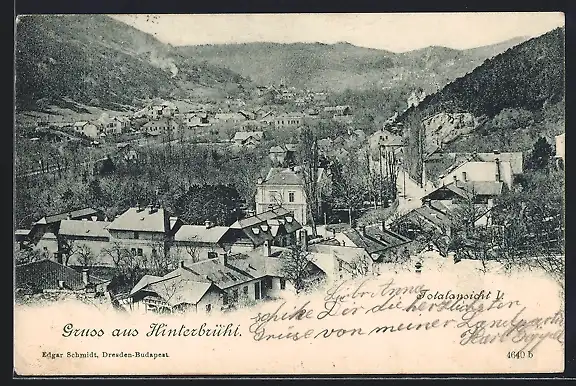 Totalansicht I.
Liebe Anna
schicke Dir die herzlichsten
Gruss aus Hinterbrühl.
Grüsse von meiner Landparthie
Karl
Edgar Schmidt, Dresden-Budapest.
4640 b